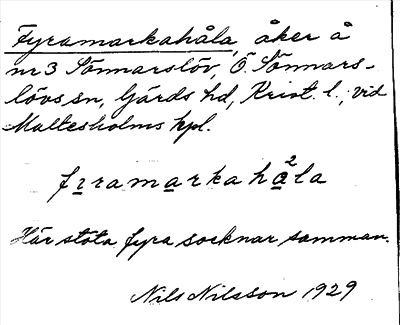 Fyramarkahåla, åker å
nr 3 Sönnarslöv, Ö. Sönnars-
lövs sn, Gärds hd, Krist. l., vid
Maltesholms hpl.
fıramarkahå²la
Här stöta fyra socknar samman.
Nils Nilsson 1929